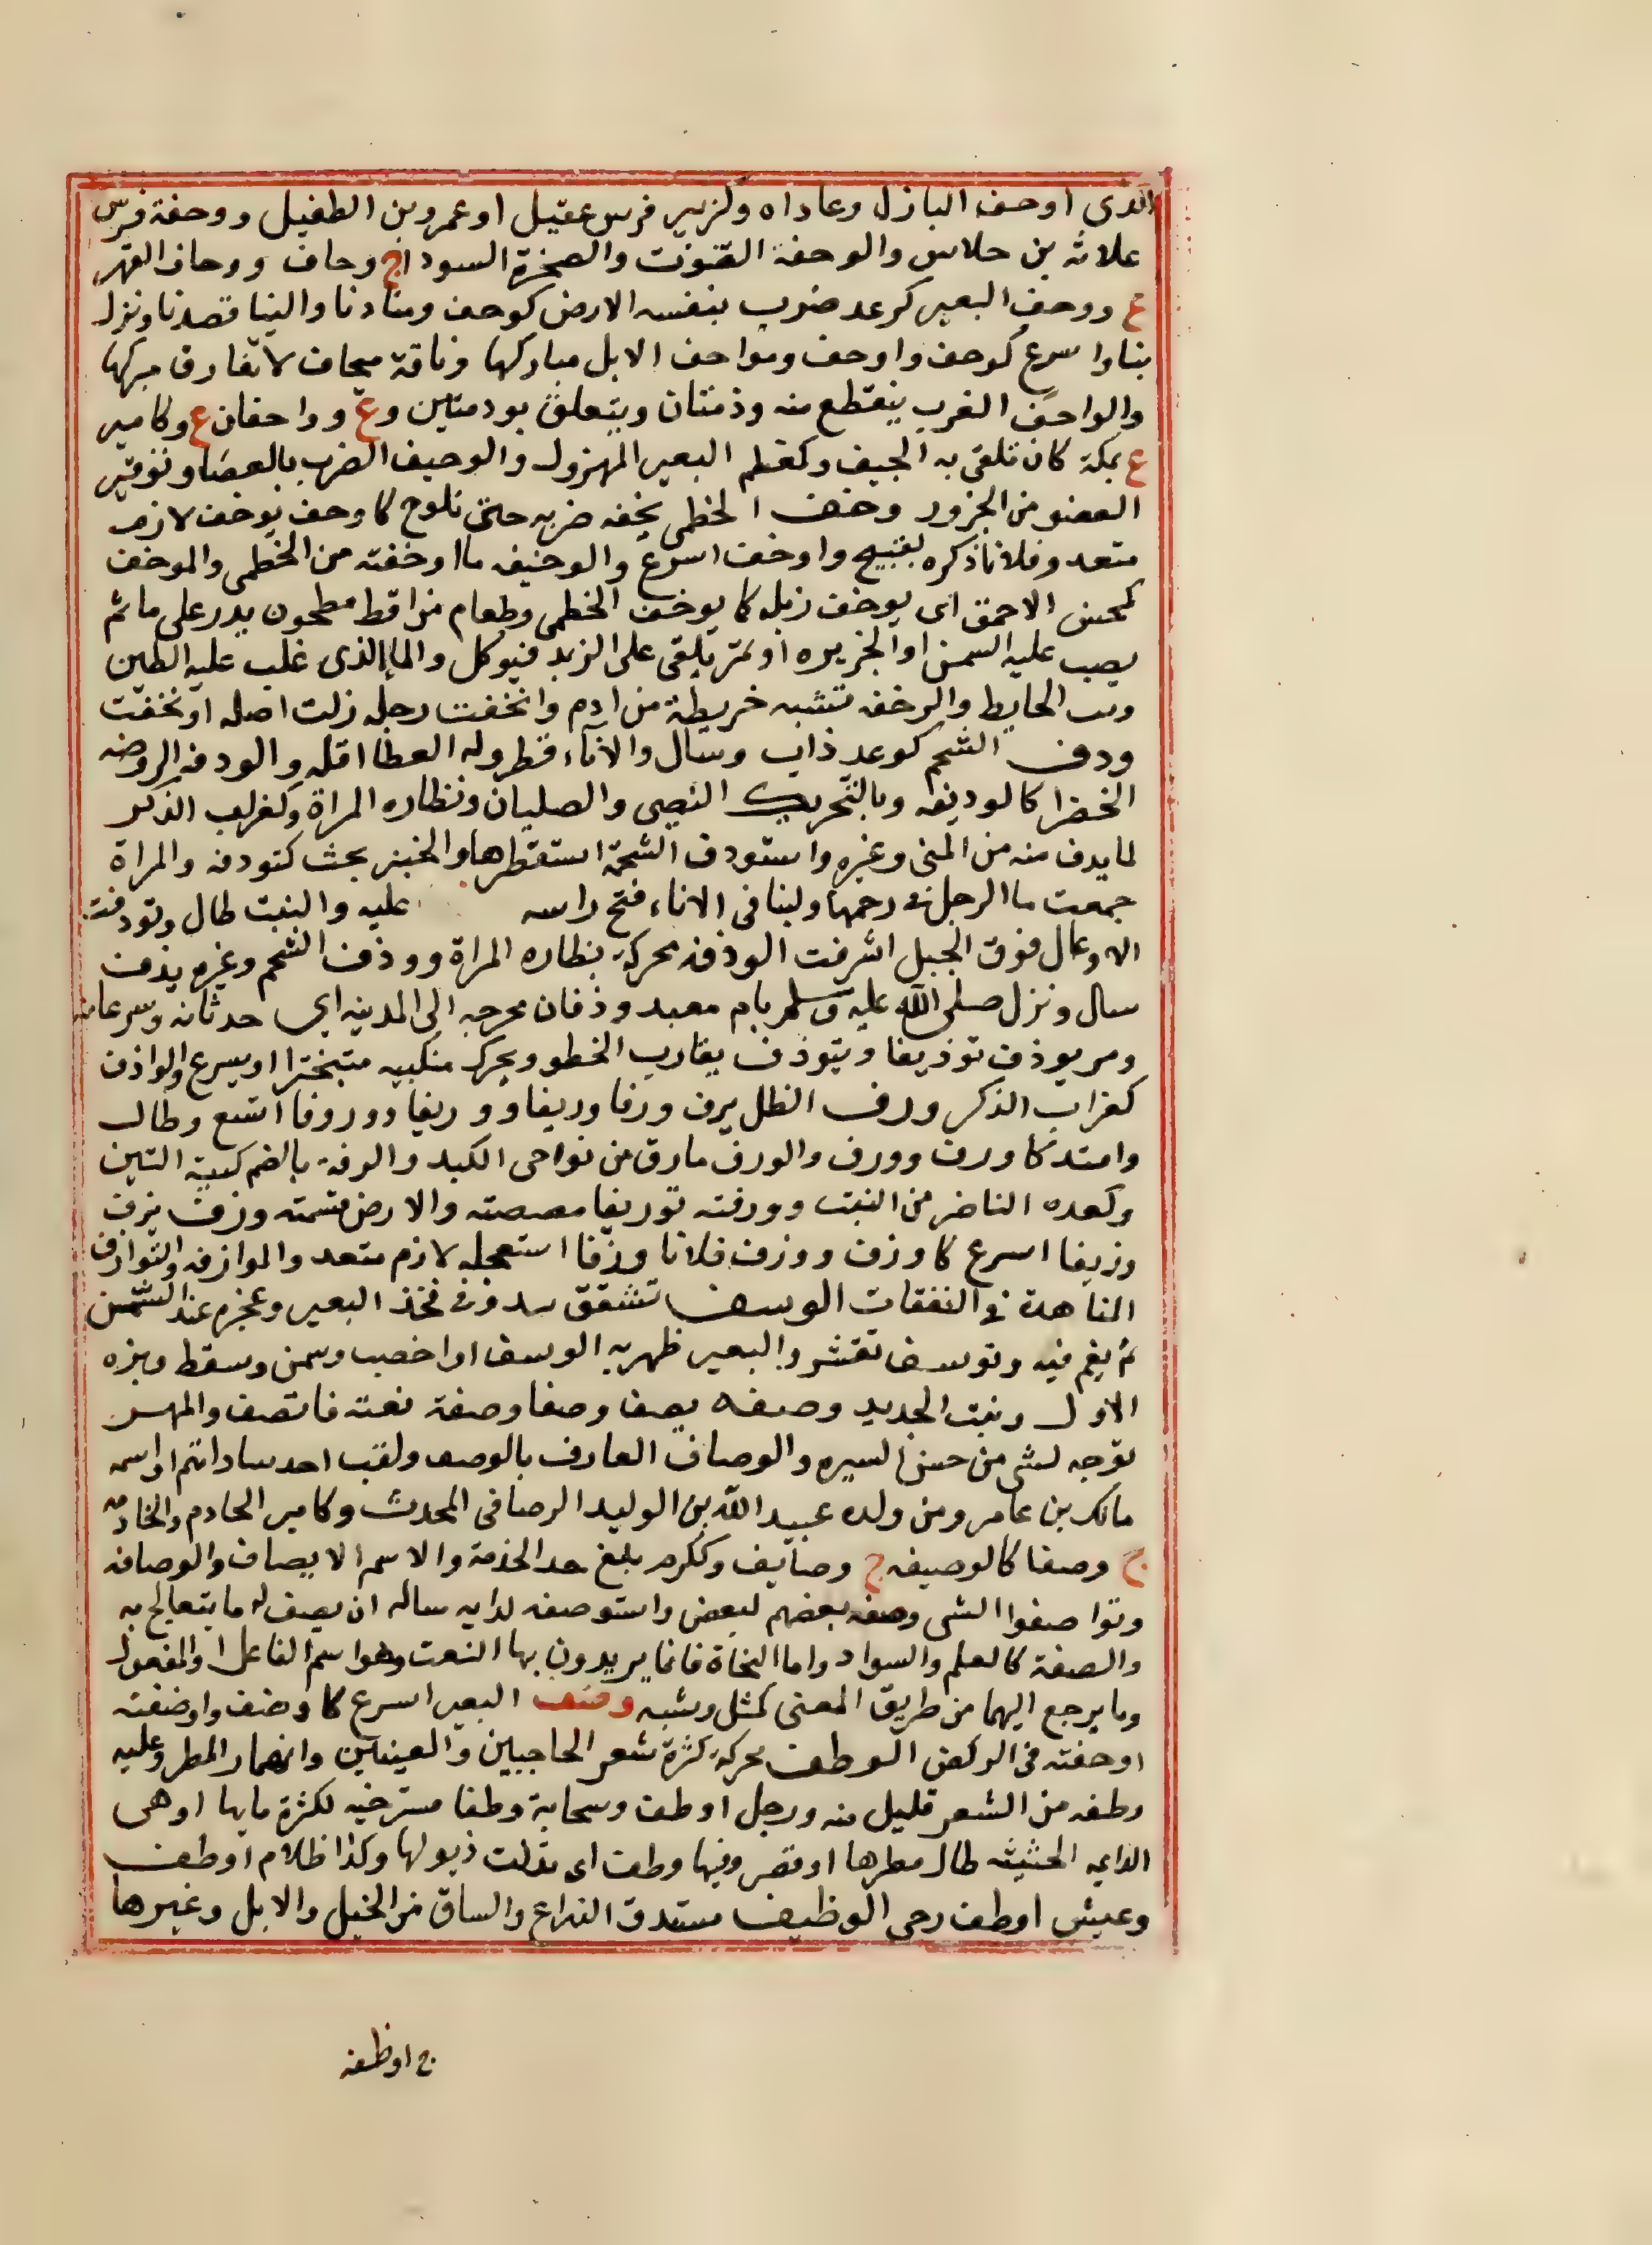 الذى اوحف البازل وعاداه وكزبير فرس عقيل او عمرو بن الطفيل ووحفة فرس
علاثه بن حلاس والوحفة الصوت والصخرة السودا ج وحاف ووحاف القهر
ع ووحف البعير كوعد ضرب بنفسه الارض كوحف ومنا دنا والينا قصدنا ونزل
بنا واسرع كوحف واوحف ومواحف الابل مباركها وناقة ميحاف لا تفارق مبركها
والواحف الغرب ينقطع منه وذمتان ويتعلق بوذمتين وع وواحفان ع وكامير
ع بمكة كان تلقى به الجيف وكمعظم البعير المهزول والوحيف الضرب بالعصا وتوفير
العضو من الجزور وخف الخطمى يخفه ضربه حتى تلوج كاوخف يوخف لازم
متعد وفلانا ذكره بقبيح واوخف اسرع والوخيفه ما اوخفته من الخطمى والموخف
كمحسن الاحمق اى يوخف زبله كما يوخف الخطمى وطعام من اقط مطحون يدر على ما ثم
يصب عليه السمن او الخزيره او تمر يلقى على الزبد فيوكل والما الذى غلب عليه الطين
وبب الحايط والوخفه تشبه خريطة من ادم واتخفت رجله زلت اصله اوتخفت
ودف الشحم كوعد ذاب وسال والاناء قطر وله العطا اقله والودفه الروضه
الخضرا كالوديفه وبالتحريك النصى والصليان وبظاره المراة وكغراب الذكر
لما يدف منه من المنى وغيره واستودف الشحمة استقطرها والخبر بحث كتودفه والمراة
جمعت ما الرجل فى رحمها ولبنا فى الاناء فتح راسه عليه والنبت طال وتودفت
الاوعال فوق الجبل اشرفت الوذفه محركة بظاره المراة ووذف الشحم وغيره يذف
سال ونزل صلى الله عليه وسلم بام معبد وذفان مخرجه الى المدينه اى حدثانه وسرعانه
ومر يوذف توذيفا ويتوذف يقارب الخطو ويحرك منكبيه متبخترا او يسرع والواذف
كغراب الذكر ورف الظل يرف ورفا وريفا ووريفا ووروفا اتسع وطال
وامتد كاورف وورف والورف مارق من نواحى الكبد والرفه بالضم كثبة التبن
وكعده الناضر من النبت وورفته توريفا مصصته والارض قسمته وزف يزف
وزيفا اسرع كاوزف ووزف فلانا وزفا استعجله لازم متعد والموازفه والتوازف
المناهدة فى النفقات الوسف تشقق يبدو فى فخذ البعير وعجزه عند السمن
ثم يعم فيه وتوسف تقشر والبعير ظهر به الوسف او اخصب وسمن وسقط وبره
الاول ونبت الجديد وصفه يصفه وصفا وصفة نعته فاتصف والمهر
توجه لشى من حسن السيره والوصاف العارف بالوصف ولقب احد ساداتهم او اسمه
مالك بن عامر ومن ولده عبيد الله بن الوليد الوصافى المحدث وكامير الخادم والخادمه
ج وصفا كالوصيفه ج وصايف وككرم بلغ حد الخدمة والاسم الايصاف والوصافه
وتواصفوا الشى وصفه بعضهم لبعض واستوصفه لدايه ساله ان يصف له ما يتعالج به
والصفة كالعلم والسواد واما النحاة فانما يريدون بها النعت وهو اسم الفاعل او المفعول
وما يرجع اليهما من طريق المعنى كمثل وشبه وضف البعير اسرع كاوضف واوضفته
اوحفته فى الركض الوطف محركة كثرة شعر الحاجبين والعينين وانهمار المطر وعليه
وطفه من الشعر قليل منه ورجل اوطف وسحابة وطفا مسترخيه لكثرة مايها او هى
الدايمه الحثيثه طال مطرها او قصر وفيها وطف اى تدلت ذيولها وكذا ظلام اوطف
وعيش اوطف رخى الوظيف مستدق الذراع والساق من الخيل والابل وغيرها
ج اوظفه